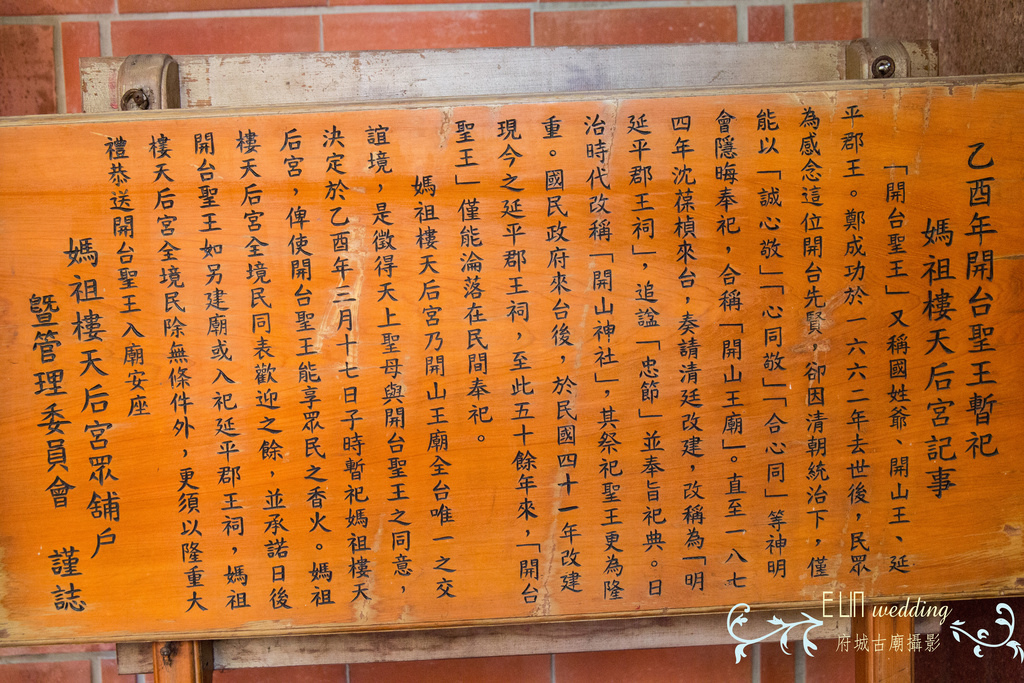 乙酉年開台聖王暫祀
媽祖樓天后宮記事
「開台聖王」又稱國姓爺、開山王、延
平郡王。鄭成功於一六六二年去世後，民眾
為感念這位開台先賢，卻因清朝統治下，僅
能以「誠心敬」「心同敬」「合心同」等神明
會隱晦奉祀，合稱「開山王廟」。直至一八七
四年沈葆楨來台，奏請清廷改建，改稱為「明
延平郡王祠」，追諡「忠節」並奉旨祀典。日
治時代改稱「開山神社」，其祭祀聖王更為隆
重。國民政府來台後，於民國四十一年改建
現今之延平郡王祠，至此五十餘年來，「開台
聖王」僅能淪落在民間奉祀。
媽祖樓天后宮乃開山王廟全台唯一之交
誼境，是徵得天上聖母與開台聖王之同意，
決定於乙酉年三月十七日子時暫祀媽祖樓天
后宮，俾使開台聖王能享眾民之香火。媽祖
樓天后宮全境民同表歡迎之餘，並承諾日後
開台聖王如另建廟或入祀延平郡王祠，媽祖
樓天后宮全境民除無條件外，更須以隆重大
禮恭送開台聖王入廟安座
媽祖樓天后宮眾舖戶
暨管理委員會 謹誌
ELIN wedding
府城古廟攝影